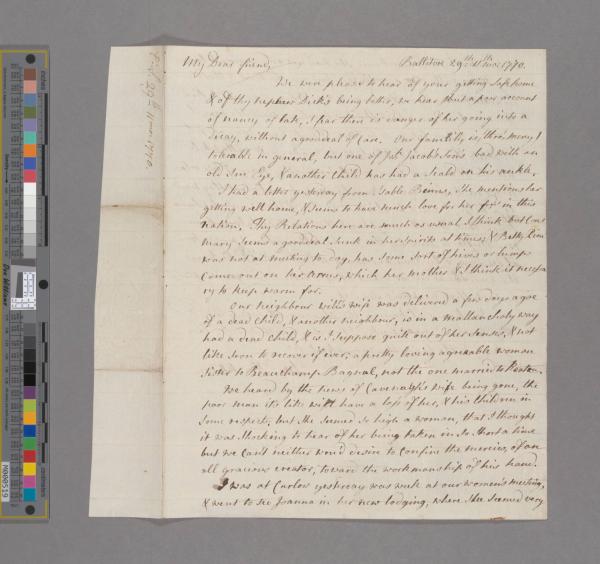 My Dear friend, Ballitore 29th 11th mo: 1770.
We were pleased to hear of your getting safe home
& of thy nephew Dick's being better, we hear but a poor account
of nancy of late, I fear there is danger of her going into a
decay, without a good deal of Care. Our family is, thro' mercy,
tolerable in general, but one of Jacob's Sons bad with an
old Sore Eye, & another Child has had a Scald on his ankle.
I had a letter yesterday from Isable She mentions her
getting well home, & seems to have much love for her frds in this
nation, Thy Relations here are much as usual I think but Cous
mary Seems a good deal Sunk in her Spirits at times; &
was not at meeting to day, has some Sort of hives or lumps
Come out on her which her mother & I think it necessa
ry to keep warm for.
Our neighbour wife was delivered a few days agoe
of a dead Child, & another neighbour, is in a mallancholy way
had a dead Child, & is I suppose quite out of her senses, & not
like soon to recover if ever; a pretty loving agreeable woman
Sister to Beauchamp Bagnal, not the one married to
We heard by the news of wife being gone, the
poor man its like will have a loss of her, & his Children in
Some respects, but she Seemed so high a woman, that I thought
it was Shocking to hear of her being taken in So Short a time
but we Can't neither wou'd desire to confine the mercies, of an
all gracious creator, toward the workmanship of his hand.
I was at Carlow yesterday was week at our women's meeting,
& went to see Joanna in her new lodging, where She Seemed very
29th 11mo: 1770
M000519